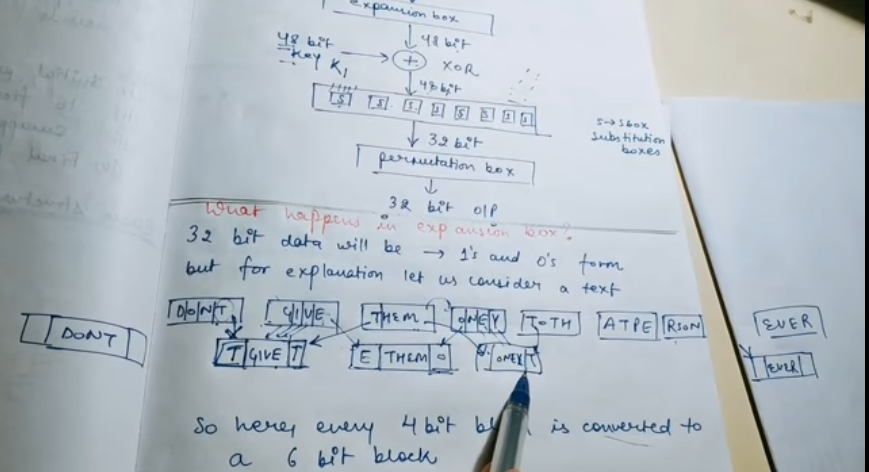 expansion box
48 bit
48 bit
key K1
+ XOR
48 bit
S S S S S S S S
S→ S box
substitution
boxes
32 bit
permutation box
32 bit O/P
What happens in expansion box?
32 bit data will be → 1's and 0's form
but for explanation let us consider a text
DONT GIVE THEM ONEY TOTH ATPE RSON EVER
DONT T GIVE T E THEM O ONEY T EVER
So here, every 4 bit is converted to
a 6 bit block